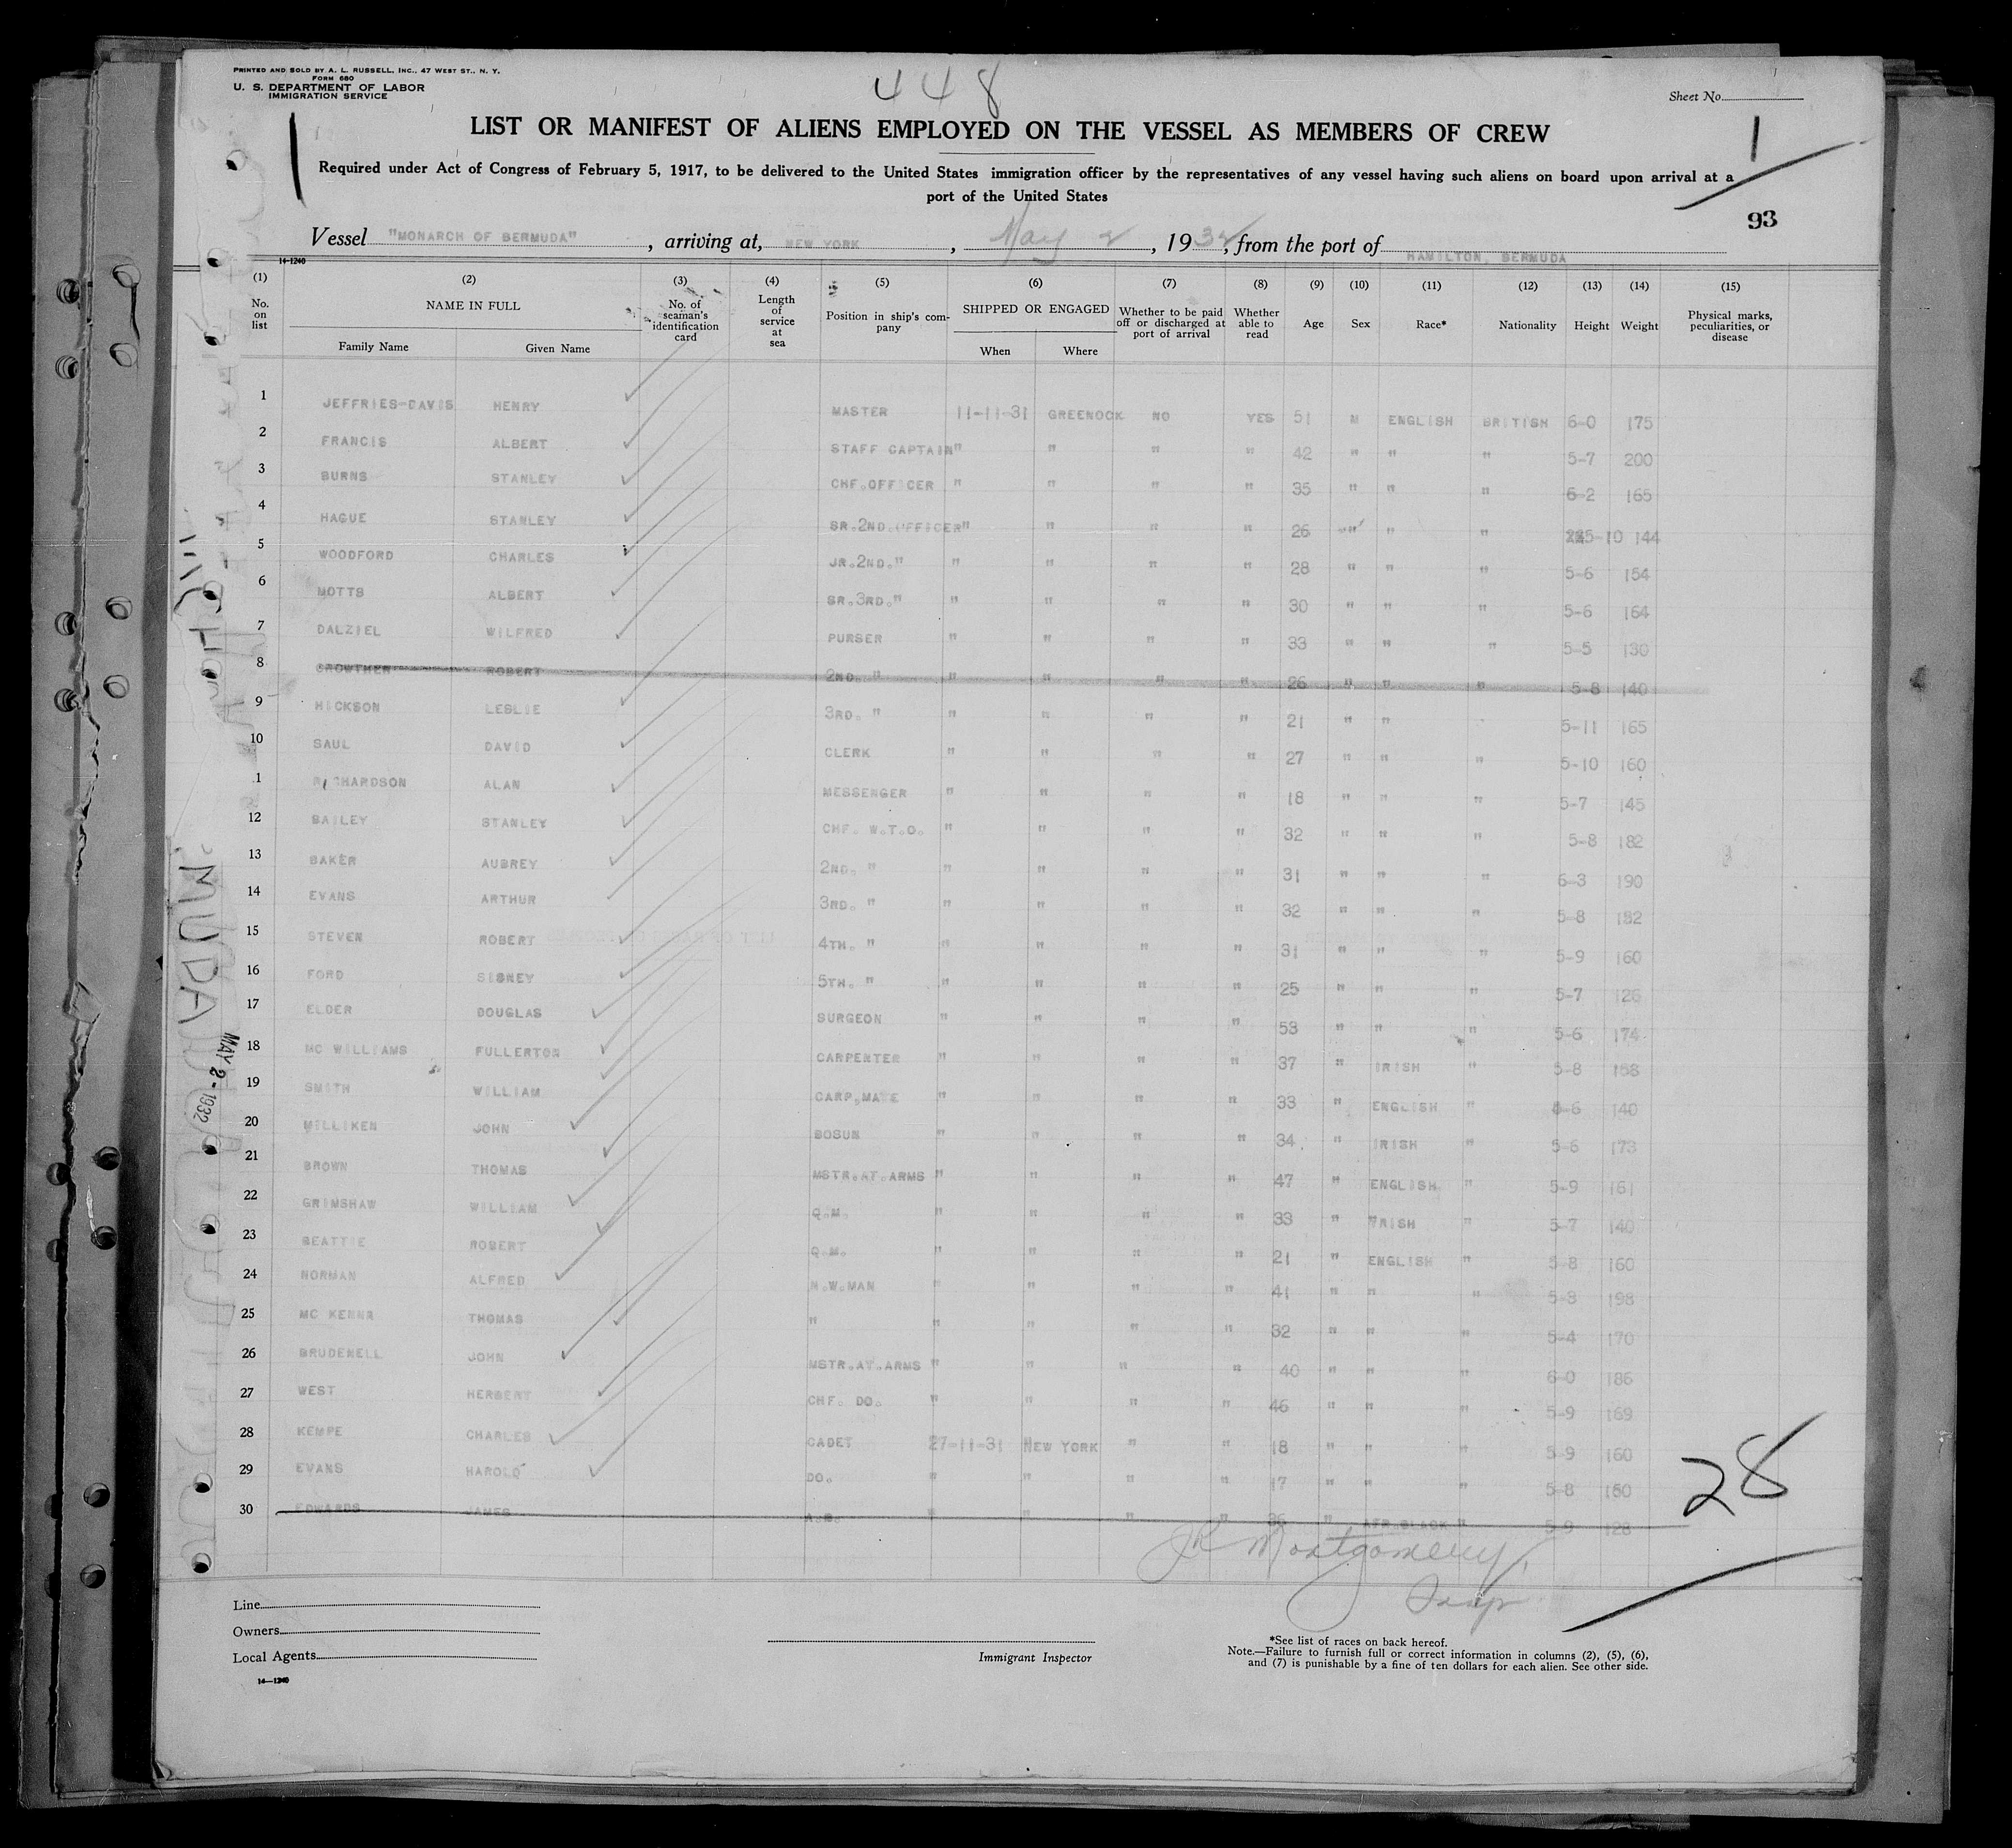 PRINTED AND SOLD BY A. L. RUSSELL, INC., 47 WEST ST., N. Y.
FORM 680
U. S. DEPARTMENT OF LABOR
IMMIGRATION SERVICE
448
Sheet No.
LIST OR MANIFEST OF ALIENS EMPLOYED ON THE VESSEL AS MEMBERS OF CREW
1
Required under Act of Congress of February 5, 1917, to be delivered to the United States immigration officer by the representatives of any vessel having such aliens on board upon arrival at a
port of the United States
93
Vessel "MONARCH OF BERMUDA", arriving at, NEW YORK, May 2, 1932, from the port of HAMILTON, BERMUDA
14-1240
(1) (2) (3) (4) (5) (6) (7) (8) (9) (10) (11) (12) (13) (14) (15)
No. on list NAME IN FULL Family Name Given Name No. of seaman's identification card Length of service at sea Position in ship's company SHIPPED OR ENGAGED When Where Whether to be paid off or discharged at port of arrival Whether able to read Age Sex Race* Nationality Height Weight Physical marks, peculiarities, or disease
1 JEFFRIES-DAVIS HENRY MASTER 11-11-31 GREENOCK NO YES 51 M ENGLISH BRITISH 6-0 175
2 FRANCIS ALBERT STAFF CAPTAIN " " " " 42 " " " 5-7 200
3 BURNS STANLEY CHF.OFFICER " " " " 35 " " " 6-2 165
4 HAGUE STANLEY SR.2ND.OFFICER " " " " 26 " " " 5-10 144
5 WOODFORD CHARLES JR.2ND." " " " " 28 " " " 5-6 154
6 MOTTS ALBERT SR.3RD." " " " " 30 " " " 5-6 164
7 DALZIEL WILFRED PURSER " " " " 33 " " " 5-5 130
8 CROWTHER ROBERT 2ND. " " " " " 26 " " " 5-8 140
9 HICKSON LESLIE 3RD. " " " " " 21 " " 5-11 165
10 SAUL DAVID CLERK " " " " 27 " " " 5-10 160
1 RICHARDSON ALAN MESSENGER " " " " 18 " " " 5-7 145
12 BAILEY STANLEY CHF. W.T.O. " " " " 32 " " " 5-8 182
13 BAKER AUBREY 2ND. " " " " " 31 " " " 6-3 190
14 EVANS ARTHUR 3RD. " " " " " 32 " " " 5-8 182
15 STEVEN ROBERT 4TH. " " " " " 31 " " " 5-9 160
16 FORD SIDNEY 5TH. " " " " " 25 " " " 5-7 126
17 ELDER DOUGLAS SURGEON " " " " 53 " " " 5-6 174
18 MC WILLIAMS FULLERTON CARPENTER " " " " 37 " IRISH " 5-8 158
19 SMITH WILLIAM CARP.MATE " " " " 33 " ENGLISH " 5-6 140
20 MILLIKEN JOHN BOSUN " " " " 34 " IRISH " 5-6 173
21 BROWN THOMAS MSTR.AT.ARMS " " " " 47 " ENGLISH " 5-9 161
22 GRIMSHAW WILLIAM Q.M. " " " " 33 " IRISH " 5-7 140
23 BEATTIE ROBERT Q.M. " " " " 21 " ENGLISH " 5-8 160
24 NORMAN ALFRED N.W.MAN " " " " 41 " " " 5-8 198
25 MC KENNA THOMAS " " " " " 32 " " " 5-4 170
26 BRUDENELL JOHN MSTR.AT.ARMS " " " " 40 " " " 6-0 186
27 WEST HERBERT CHF. DO. " " " " 46 " " " 5-9 169
28 KEMPE CHARLES CADET 27-11-31 NEW YORK " " 18 " " " 5-9 160
29 EVANS HAROLD DO. " " " " 17 " " " 5-8 150
30 EDWARDS JAMES A.B. " " " " 36 " AFR.BLACK " 5-9 128
28
JR Montgomery
Insp
MUDA
MAY 2 - 1932
Line
Owners
Local Agents
Immigrant Inspector
*See list of races on back hereof.
Note.—Failure to furnish full or correct information in columns (2), (5), (6),
and (7) is punishable by a fine of ten dollars for each alien. See other side.
14—1240